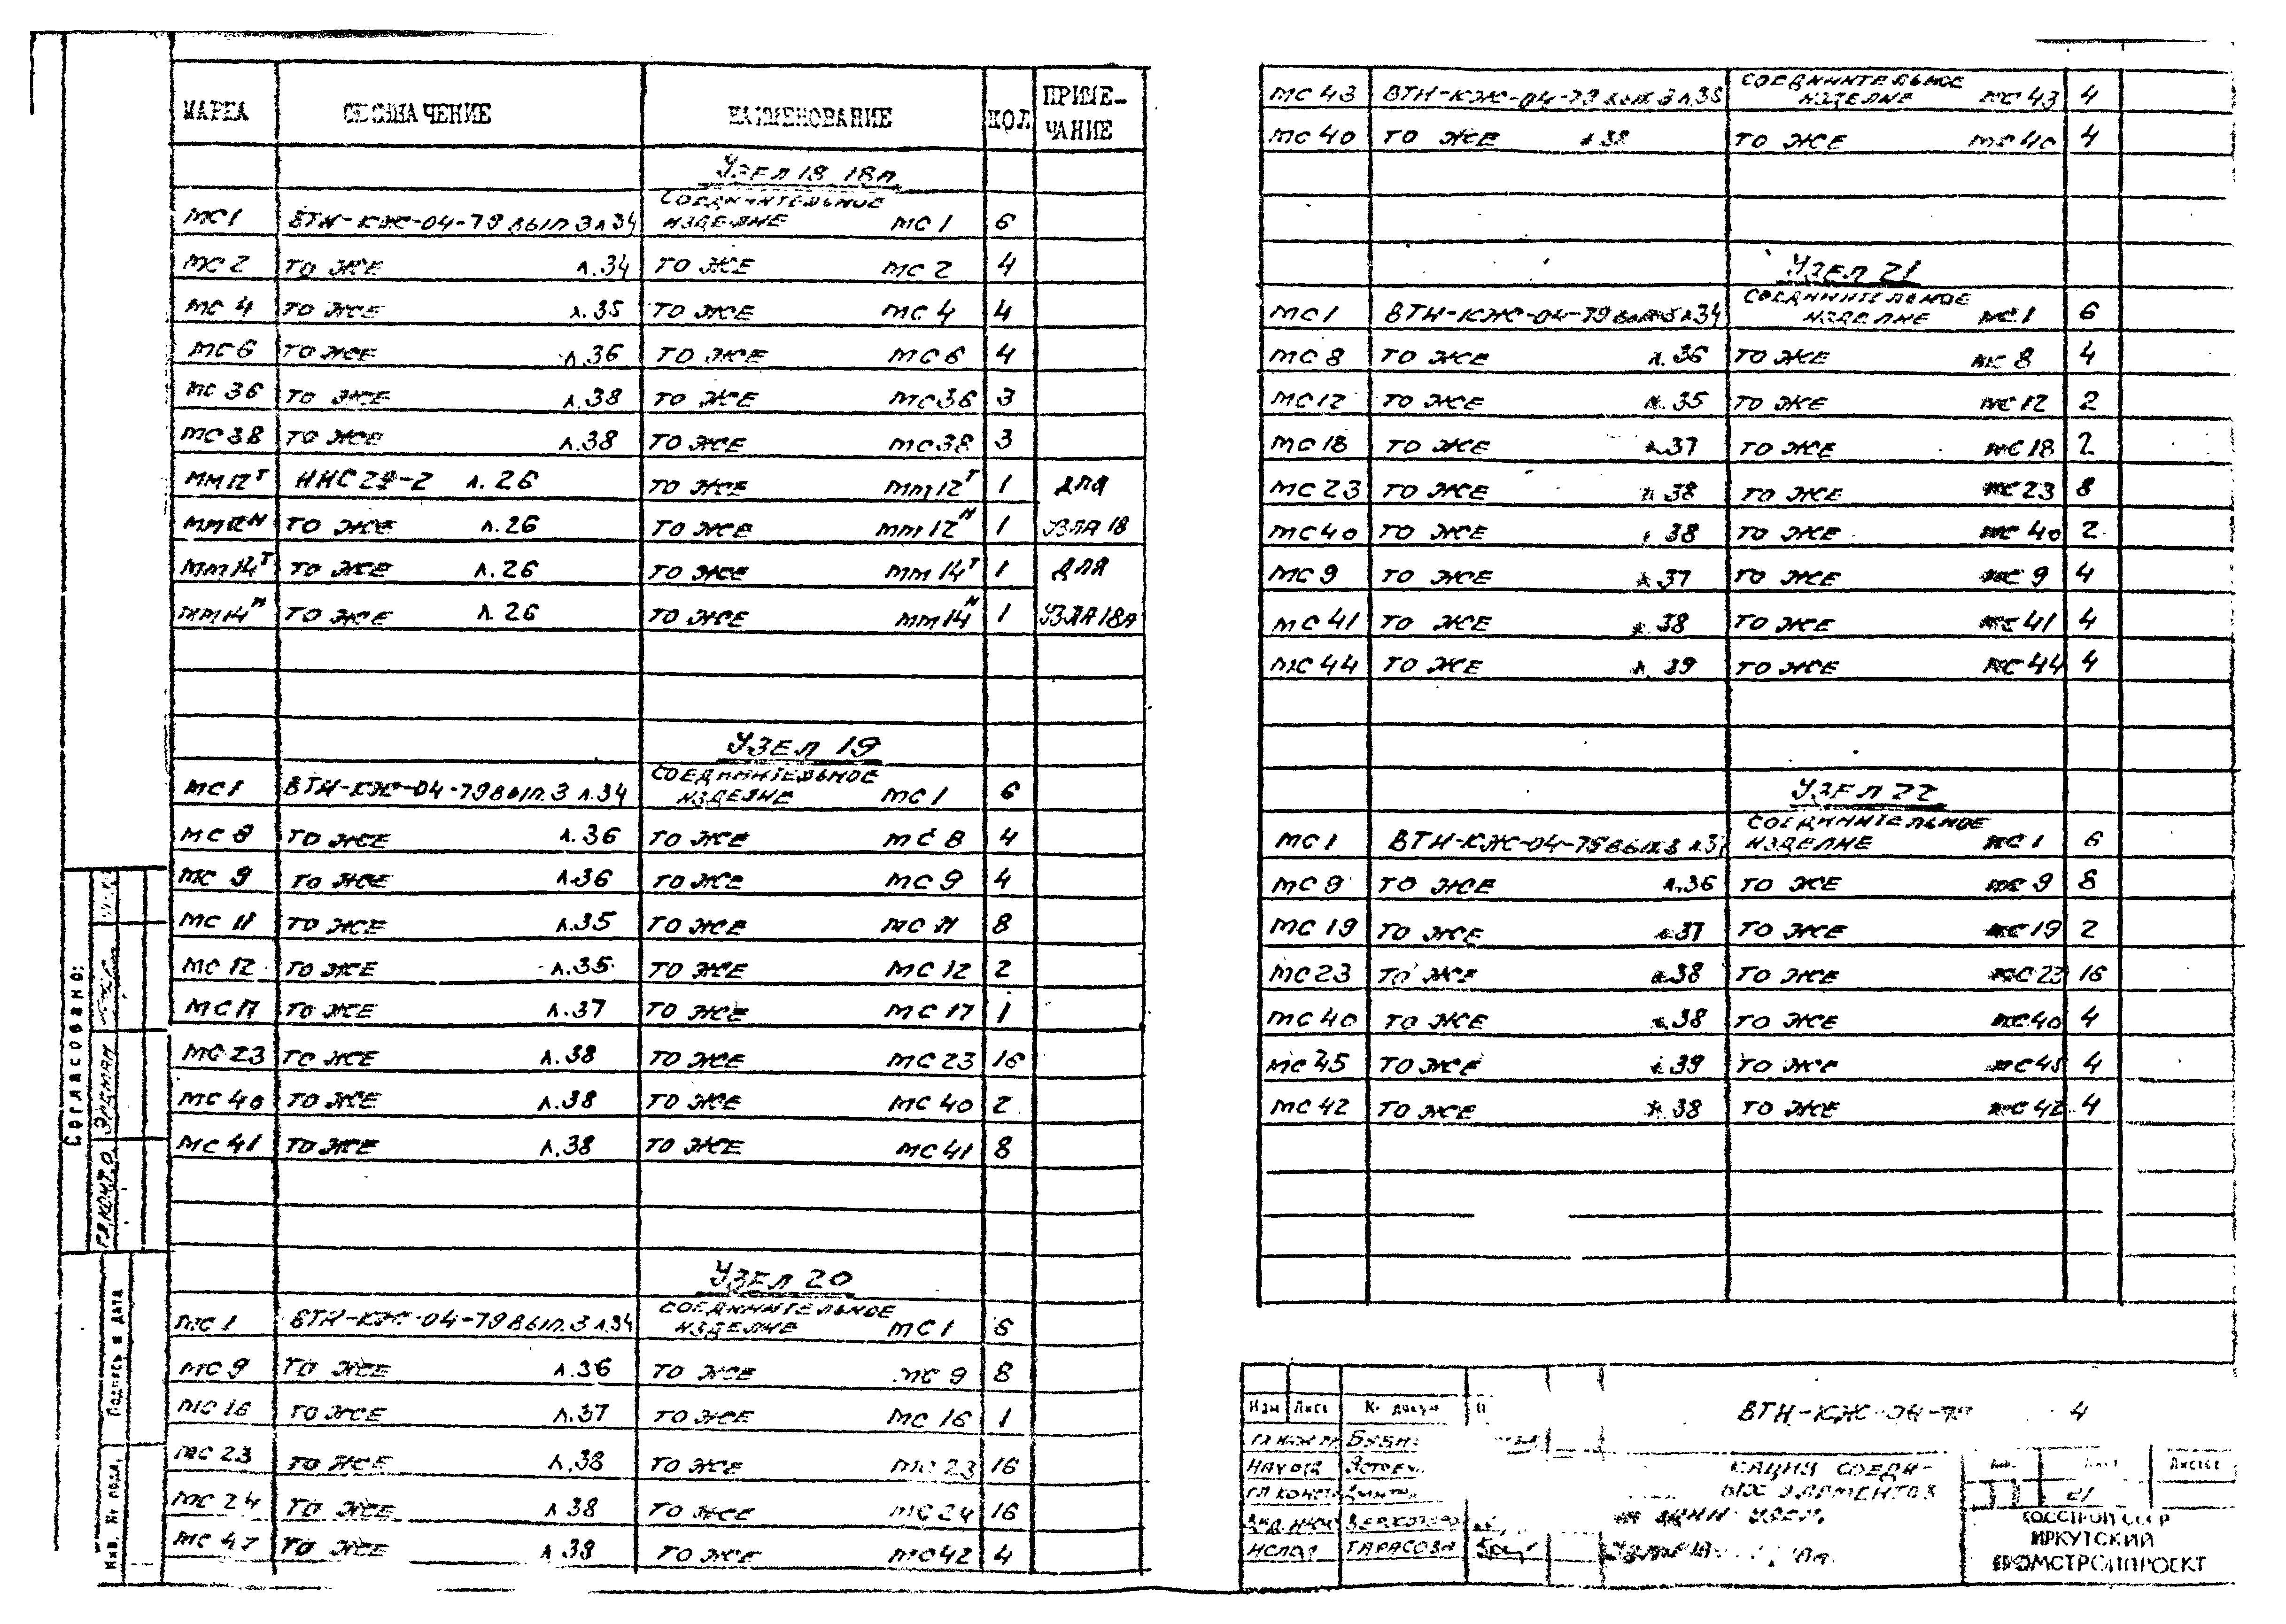 МАРКА ОБОЗНАЧЕНИЕ НАИМЕНОВАНИЕ КОЛ ПРИМЕ-
ЧАНИЕ
УЗЕЛ 18 18А
МС1 ВТН-КЖ-04-79 ВЫП.3 Л.34 СОЕДИНИТЕЛЬНОЕ
ИЗДЕЛИЕ МС1 6
МС2 ТО ЖЕ Л.34 ТО ЖЕ МС2 4
МС4 ТО ЖЕ Л.35 ТО ЖЕ МС4 4
МС6 ТО ЖЕ Л.36 ТО ЖЕ МС6 4
МС36 ТО ЖЕ Л.38 ТО ЖЕ МС36 3
МС38 ТО ЖЕ Л.38 ТО ЖЕ МС38 3
ММ12Т Л.26 ТО ЖЕ ММ12Т 1 ДЛЯ
ММ12Н ТО ЖЕ Л.26 ТО ЖЕ ММ12Н 1 УЗЛА 18
ММ14Т ТО ЖЕ Л.26 ТО ЖЕ ММ14Т 1 ДЛЯ
ММ14Н ТО ЖЕ Л.26 ТО ЖЕ ММ14Н 1 УЗЛА 18А
УЗЕЛ 19
МС1 ВТН-КЖ-04-79 ВЫП.3 Л.34 СОЕДИНИТЕЛЬНОЕ
ИЗДЕЛИЕ МС1 6
МС8 ТО ЖЕ Л.36 ТО ЖЕ МС8 4
МС9 ТО ЖЕ Л.36 ТО ЖЕ МС9 4
МС11 ТО ЖЕ Л.35 ТО ЖЕ МС11 8
МС12 ТО ЖЕ Л.35 ТО ЖЕ МС12 2
МС17 ТО ЖЕ Л.37 ТО ЖЕ МС17 1
МС23 ТО ЖЕ Л.38 ТО ЖЕ МС23 16
МС40 ТО ЖЕ Л.38 ТО ЖЕ МС40 2
МС41 ТО ЖЕ Л.38 ТО ЖЕ МС41 8
УЗЕЛ 20
МС1 ВТН-КЖ-04-79 ВЫП.3 Л.34 СОЕДИНИТЕЛЬНОЕ
ИЗДЕЛИЕ МС1 6
МС9 ТО ЖЕ Л.36 ТО ЖЕ МС9 8
МС16 ТО ЖЕ Л.37 ТО ЖЕ МС16 1
МС23 ТО ЖЕ Л.38 ТО ЖЕ МС23 16
МС24 ТО ЖЕ Л.38 ТО ЖЕ МС24 16
МС42 ТО ЖЕ Л.38 ТО ЖЕ МС42 4
МС43 ВТН-КЖ-04-79 ВЫП.3 Л.38 СОЕДИНИТЕЛЬНОЕ
ИЗДЕЛИЕ МС43 4
МС40 ТО ЖЕ Л.38 ТО ЖЕ МС40 4
УЗЕЛ 21
МС1 ВТН-КЖ-04-79 ВЫП.3 Л.34 СОЕДИНИТЕЛЬНОЕ
ИЗДЕЛИЕ МС1 6
МС8 ТО ЖЕ Л.36 ТО ЖЕ МС8 4
МС12 ТО ЖЕ Л.35 ТО ЖЕ МС12 2
МС18 ТО ЖЕ Л.37 ТО ЖЕ МС18 2
МС23 ТО ЖЕ Л.38 ТО ЖЕ МС23 8
МС40 ТО ЖЕ Л.38 ТО ЖЕ МС40 2
МС9 ТО ЖЕ Л.37 ТО ЖЕ МС9 4
МС41 ТО ЖЕ Л.38 ТО ЖЕ МС41 4
МС44 ТО ЖЕ Л.39 ТО ЖЕ МС44 4
УЗЕЛ 22
МС1 ВТН-КЖ-04-79 ВЫП.3 СОЕДИНИТЕЛЬНОЕ
ИЗДЕЛИЕ МС1 6
МС9 ТО ЖЕ Л.36 ТО ЖЕ МС9 8
МС19 ТО ЖЕ Л.37 ТО ЖЕ МС19 2
МС23 ТО ЖЕ Л.38 ТО ЖЕ МС23 16
МС40 ТО ЖЕ Л.38 ТО ЖЕ МС40 4
МС45 ТО ЖЕ Л.39 ТО ЖЕ МС45 4
МС42 ТО ЖЕ Л.38 ТО ЖЕ МС42 4
Согласовано:
ГЛ.КОНТ.О ЭЛЬМАН
Подпись и дата
Инв. № подл.
Изм Лист № докум
ВТН-КЖ-04-79 4
НАЧ ОТД
ГЛ КОНСТ
ВЕД.ИНЖ
ИСПОЛ ТАРАСОВА
КАЦИЯ СОЕДИ-
ЫХ ЭЛЕМЕНТОВ
Лист Листов
21
ГОССТРОЙ СССР
ИРКУТСКИЙ
ПРОМСТРОЙПРОЕКТ